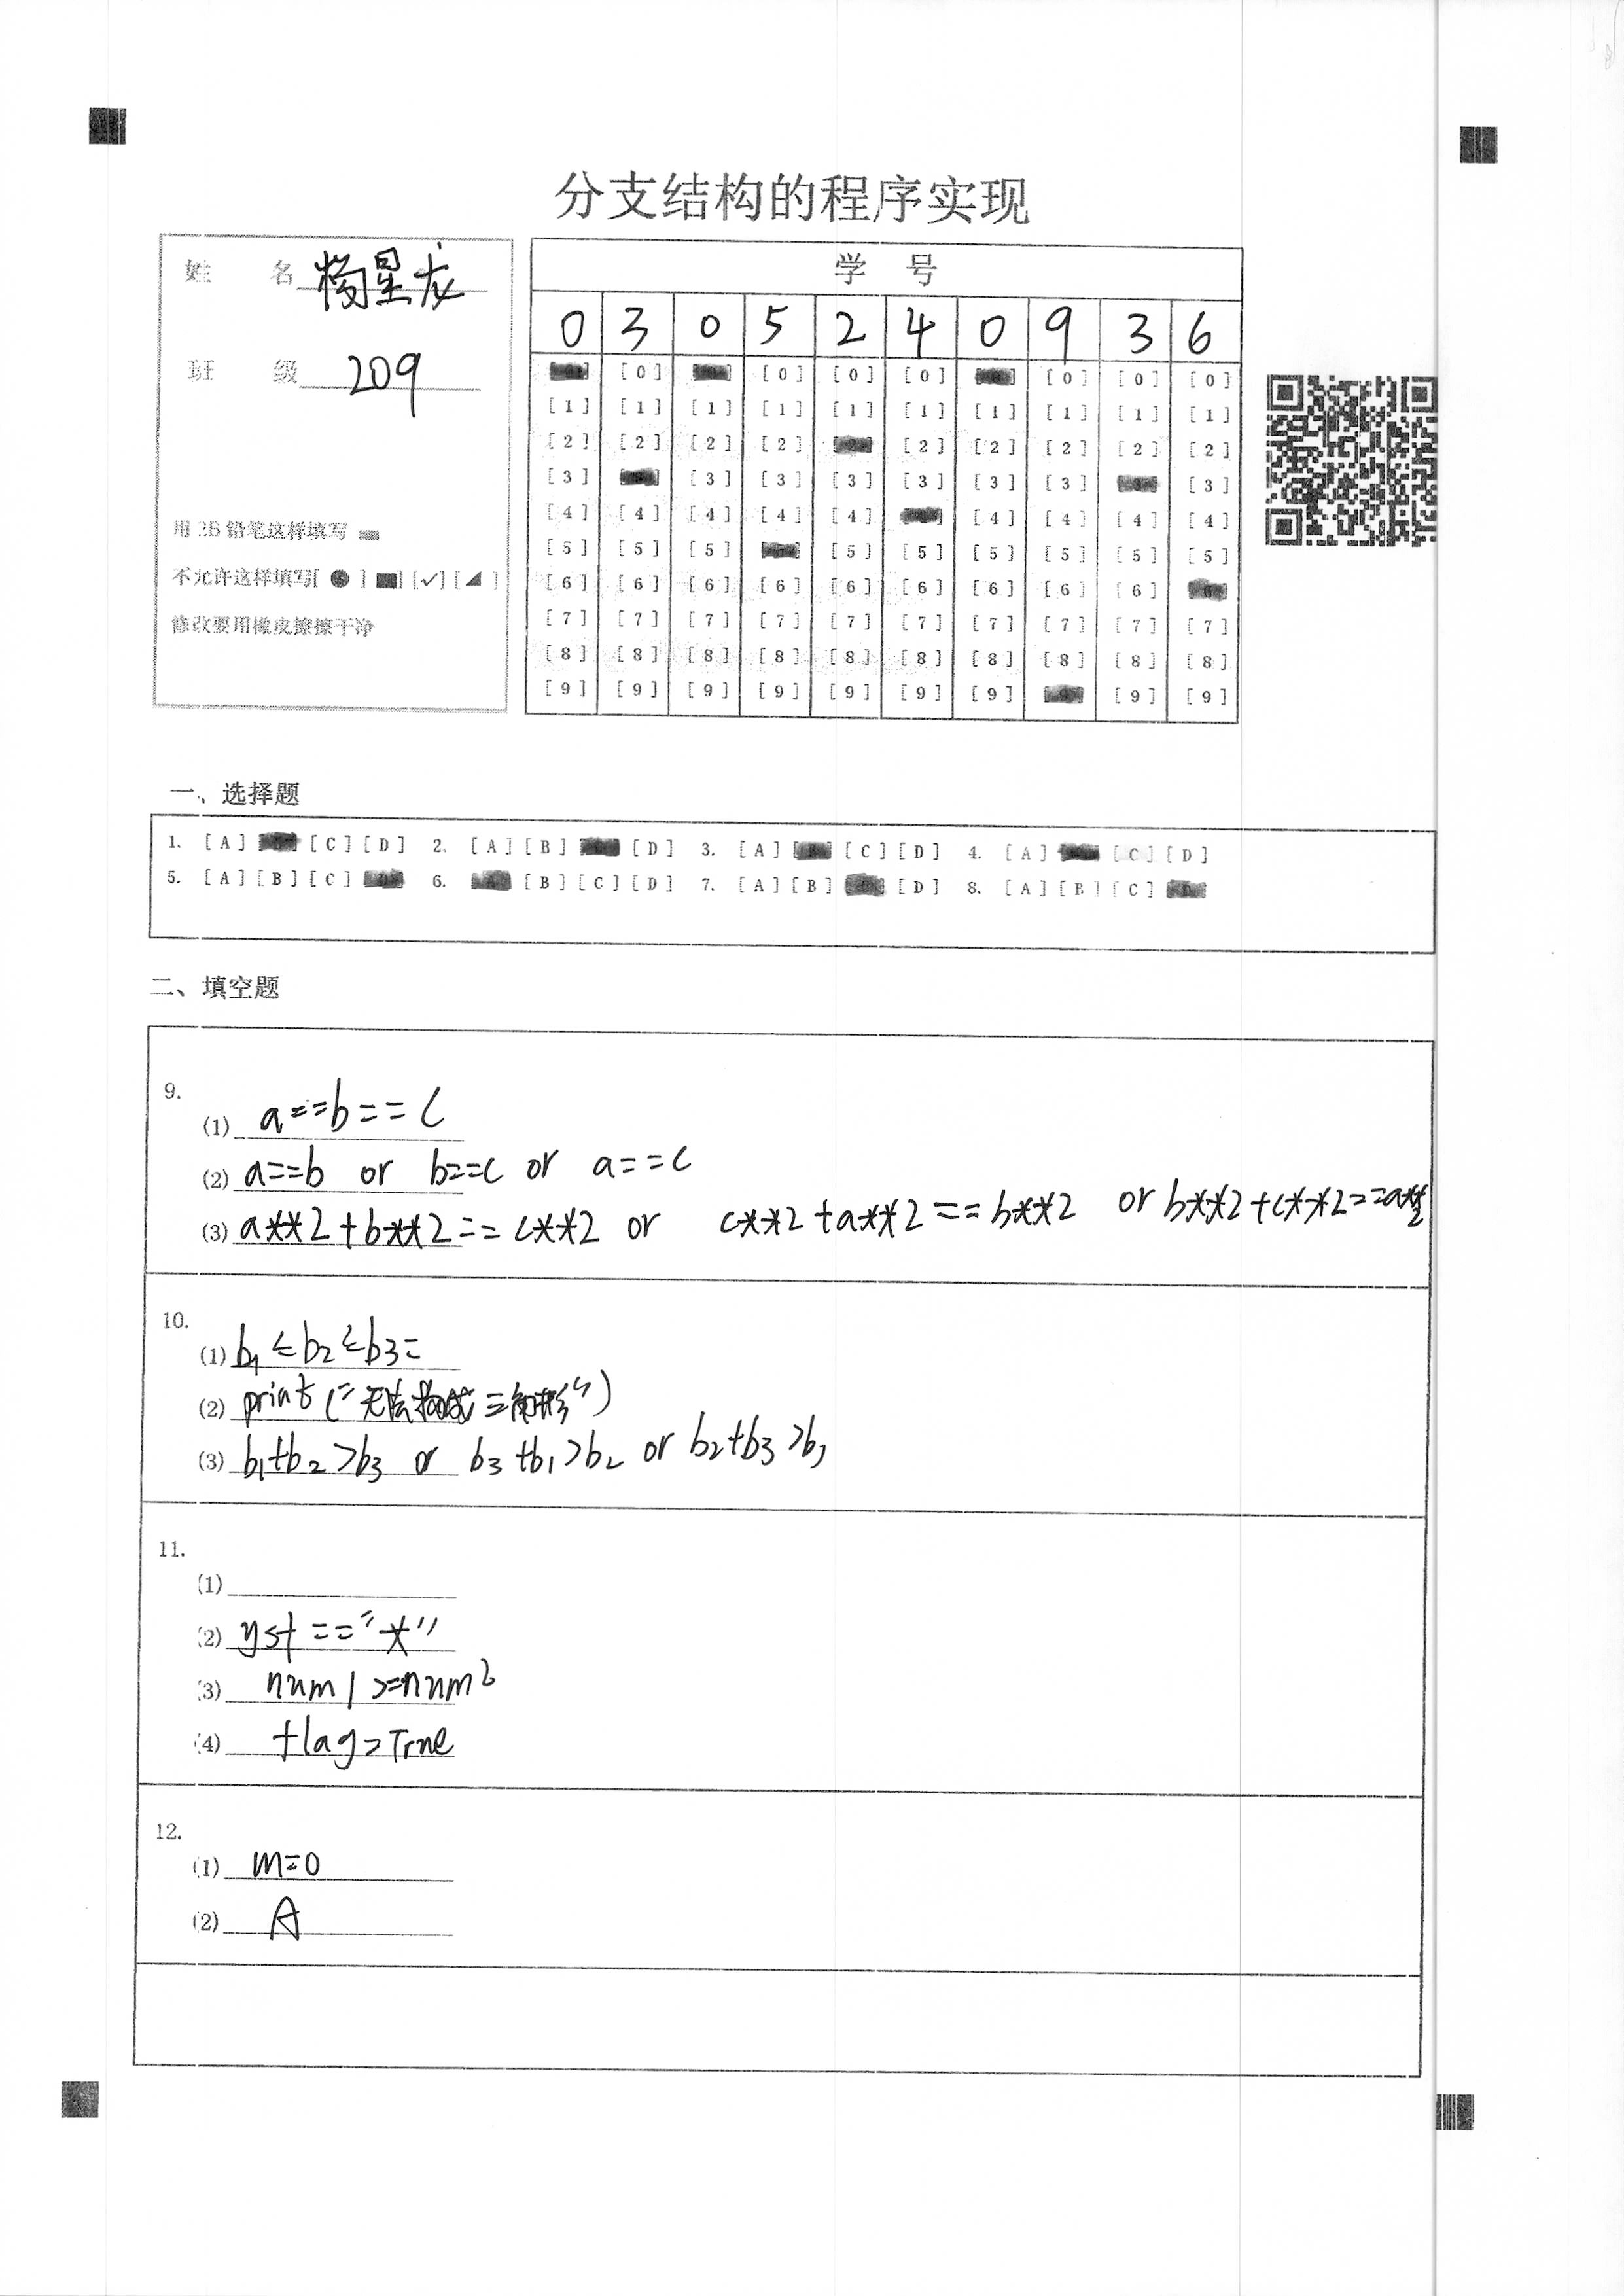 分支结构的程序实现
姓 名 杨星龙
班 级 209
用 2B 铅笔这样填写
不允许这样填写[ ● ] [■] [✓] [◢ ]
修改要用橡皮擦擦干净
学 号
0 3 0 5 2 4 0 9 3 6
[0] [0] [0] [0] [0] [0] [0]
[1] [1] [1] [1] [1] [1] [1] [1] [1] [1]
[2] [2] [2] [2] [2] [2] [2] [2] [2]
[3] [3] [3] [3] [3] [3] [3] [3]
[4] [4] [4] [4] [4] [4] [4] [4] [4]
[5] [5] [5] [5] [5] [5] [5] [5] [5]
[6] [6] [6] [6] [6] [6] [6] [6] [6] [6]
[7] [7] [7] [7] [7] [7] [7] [7] [7] [7]
[8] [8] [8] [8] [8] [8] [8] [8] [8] [8]
[9] [9] [9] [9] [9] [9] [9] [9] [9] [9]
一、选择题
1. [A] [C] [D] 2. [A] [B] [D] 3. [A] [B] [C] [D] 4. [A] [C] [D]
5. [A] [B] [C] 6. [A] [B] [C] [D] 7. [A] [B] [D] 8. [A] [B] [C]
二、填空题
9.
(1) a==b==c
(2) a==b or b==c or a==c
(3) a**2+b**2==c**2 or c**2+a**2==b**2 or b**2+c**2==a**2
10.
(1) b1≤b2≤b3=
(2) print("无法构成三角形")
(3) b1+b2>b3 or b3+b1>b2 or b2+b3>b1
11.
(1)
(2) yst=="*"
(3) num1>=num2
(4) flag=True
12.
(1) m=0
(2) A